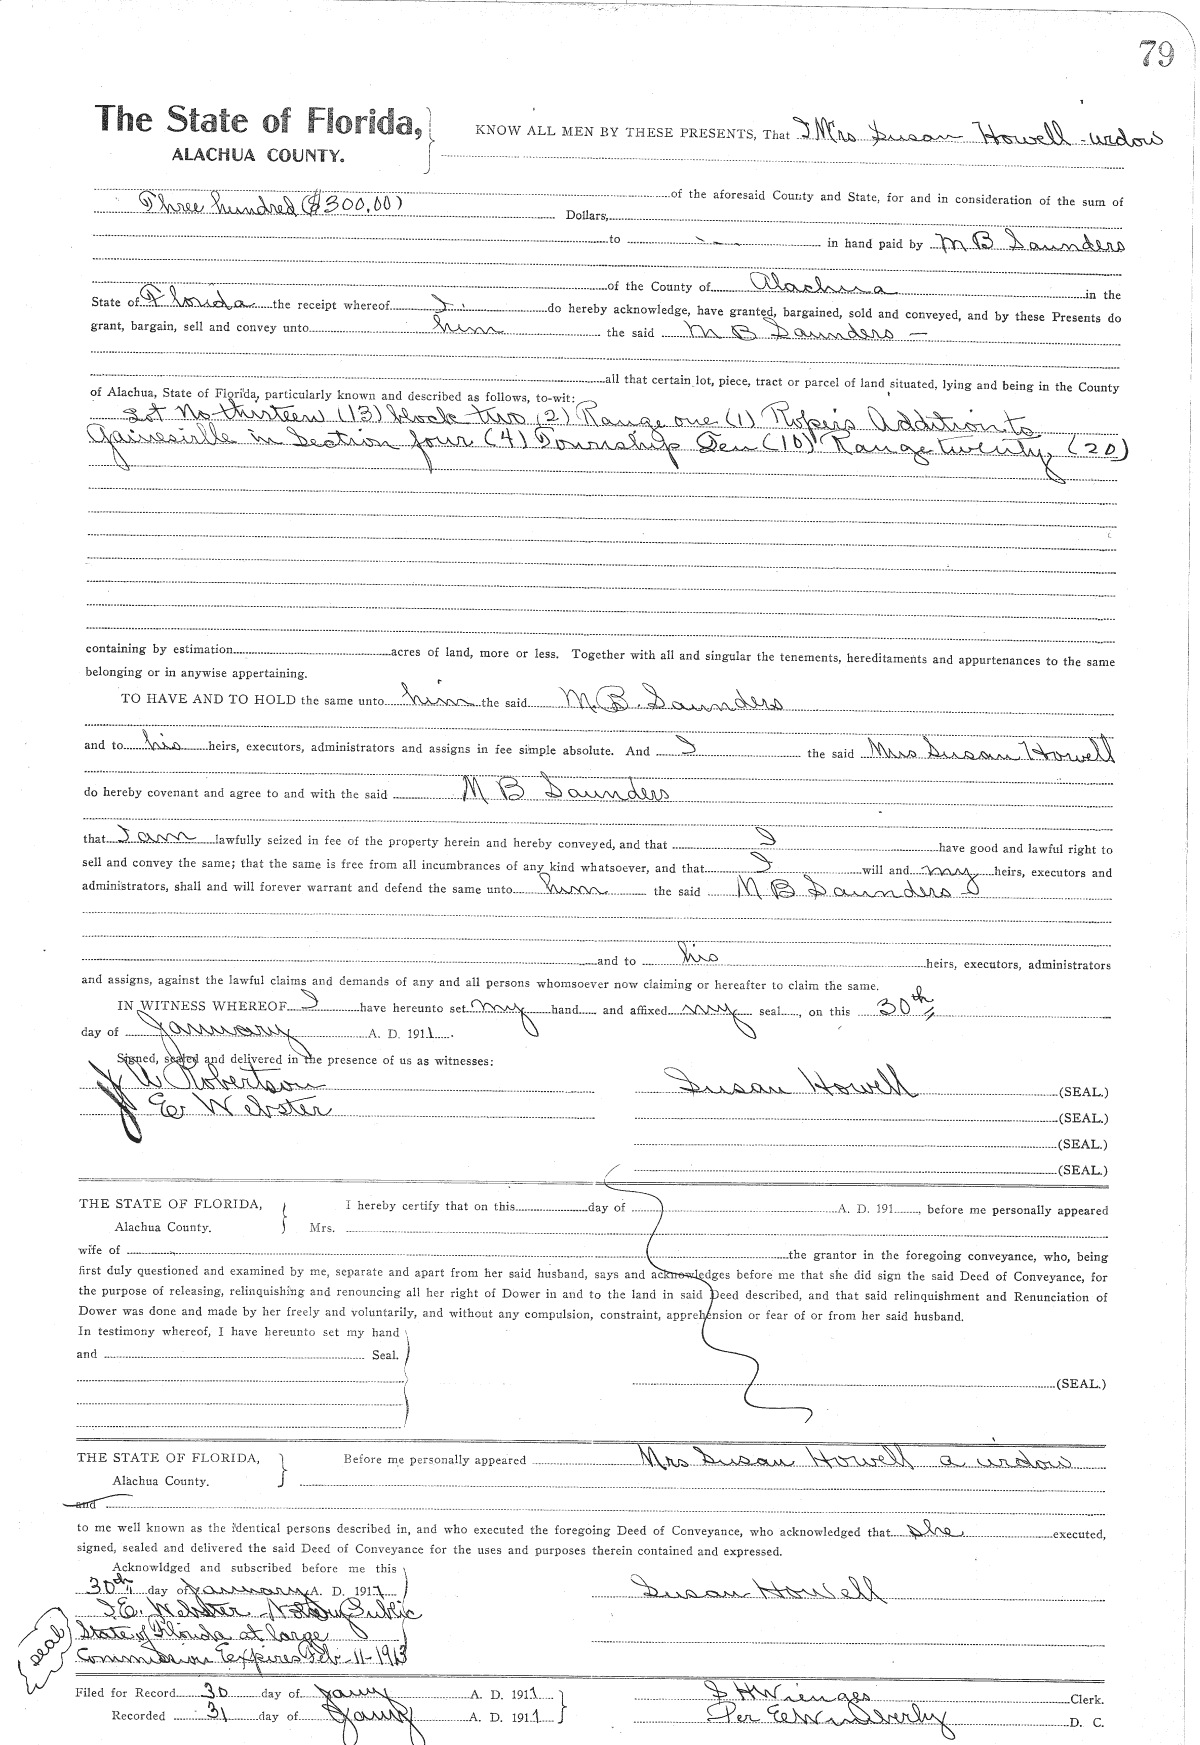 79
The State of Florida,
ALACHUA COUNTY.
KNOW ALL MEN BY THESE PRESENTS, That I Mrs Susan Howell - widow
of the aforesaid County and State, for and in consideration of the sum of
Three hundred ($300.00) Dollars,
to in hand paid by M B Saunders
of the County of Alachua in the
State of Florida the receipt whereof I do hereby acknowledge, have granted, bargained, sold and conveyed, and by these Presents do
grant, bargain, sell and convey unto him the said M B Saunders —
all that certain lot, piece, tract or parcel of land situated, lying and being in the County
of Alachua, State of Florida, particularly known and described as follows, to-wit:
Lot No thirteen (13) block two (2) Range one (1) Roper's Addition to
Gainesville in Section four (4) Township Ten (10) Range twenty (20)
containing by estimation acres of land, more or less. Together with all and singular the tenements, hereditaments and appurtenances to the same
belonging or in anywise appertaining.
TO HAVE AND TO HOLD the same unto him the said M. B. Saunders
and to his heirs, executors, administrators and assigns in fee simple absolute. And I the said Mrs Susan Howell
do hereby covenant and agree to and with the said M B Saunders
that I am lawfully seized in fee of the property herein and hereby conveyed, and that I have good and lawful right to
sell and convey the same; that the same is free from all incumbrances of any kind whatsoever, and that I will and my heirs, executors and
administrators, shall and will forever warrant and defend the same unto him the said M B Saunders
and to his heirs, executors, administrators
and assigns, against the lawful claims and demands of any and all persons whomsoever now claiming or hereafter to claim the same.
IN WITNESS WHEREOF I have hereunto set my hand and affixed my seal, on this 30th
day of January A. D. 1911.
Signed, sealed and delivered in the presence of us as witnesses:
J W Robertson
J E Webster
Susan Howell (SEAL.)
(SEAL.)
(SEAL.)
(SEAL.)
THE STATE OF FLORIDA,
Alachua County.
I hereby certify that on this day of A. D. 191 , before me personally appeared
Mrs.
wife of the grantor in the foregoing conveyance, who, being
first duly questioned and examined by me, separate and apart from her said husband, says and acknowledges before me that she did sign the said Deed of Conveyance, for
the purpose of releasing, relinquishing and renouncing all her right of Dower in and to the land in said Deed described, and that said relinquishment and Renunciation of
Dower was done and made by her freely and voluntarily, and without any compulsion, constraint, apprehension or fear of or from her said husband.
In testimony whereof, I have hereunto set my hand
and Seal.
(SEAL.)
THE STATE OF FLORIDA,
Alachua County.
Before me personally appeared Mrs Susan Howell a widow
and
to me well known as the identical persons described in, and who executed the foregoing Deed of Conveyance, who acknowledged that she executed,
signed, sealed and delivered the said Deed of Conveyance for the uses and purposes therein contained and expressed.
Acknowldged and subscribed before me this
30th day of January A. D. 1911
J. E. Webster - Notary Public
State of Florida at large
Commission Expires Feb - 11 - 1913
seal
Susan Howell
Filed for Record 30 day of Jany A. D. 1911
Recorded 31 day of Jany A. D. 1911
S H Wienges Clerk.
Per E E Wimberly D. C.